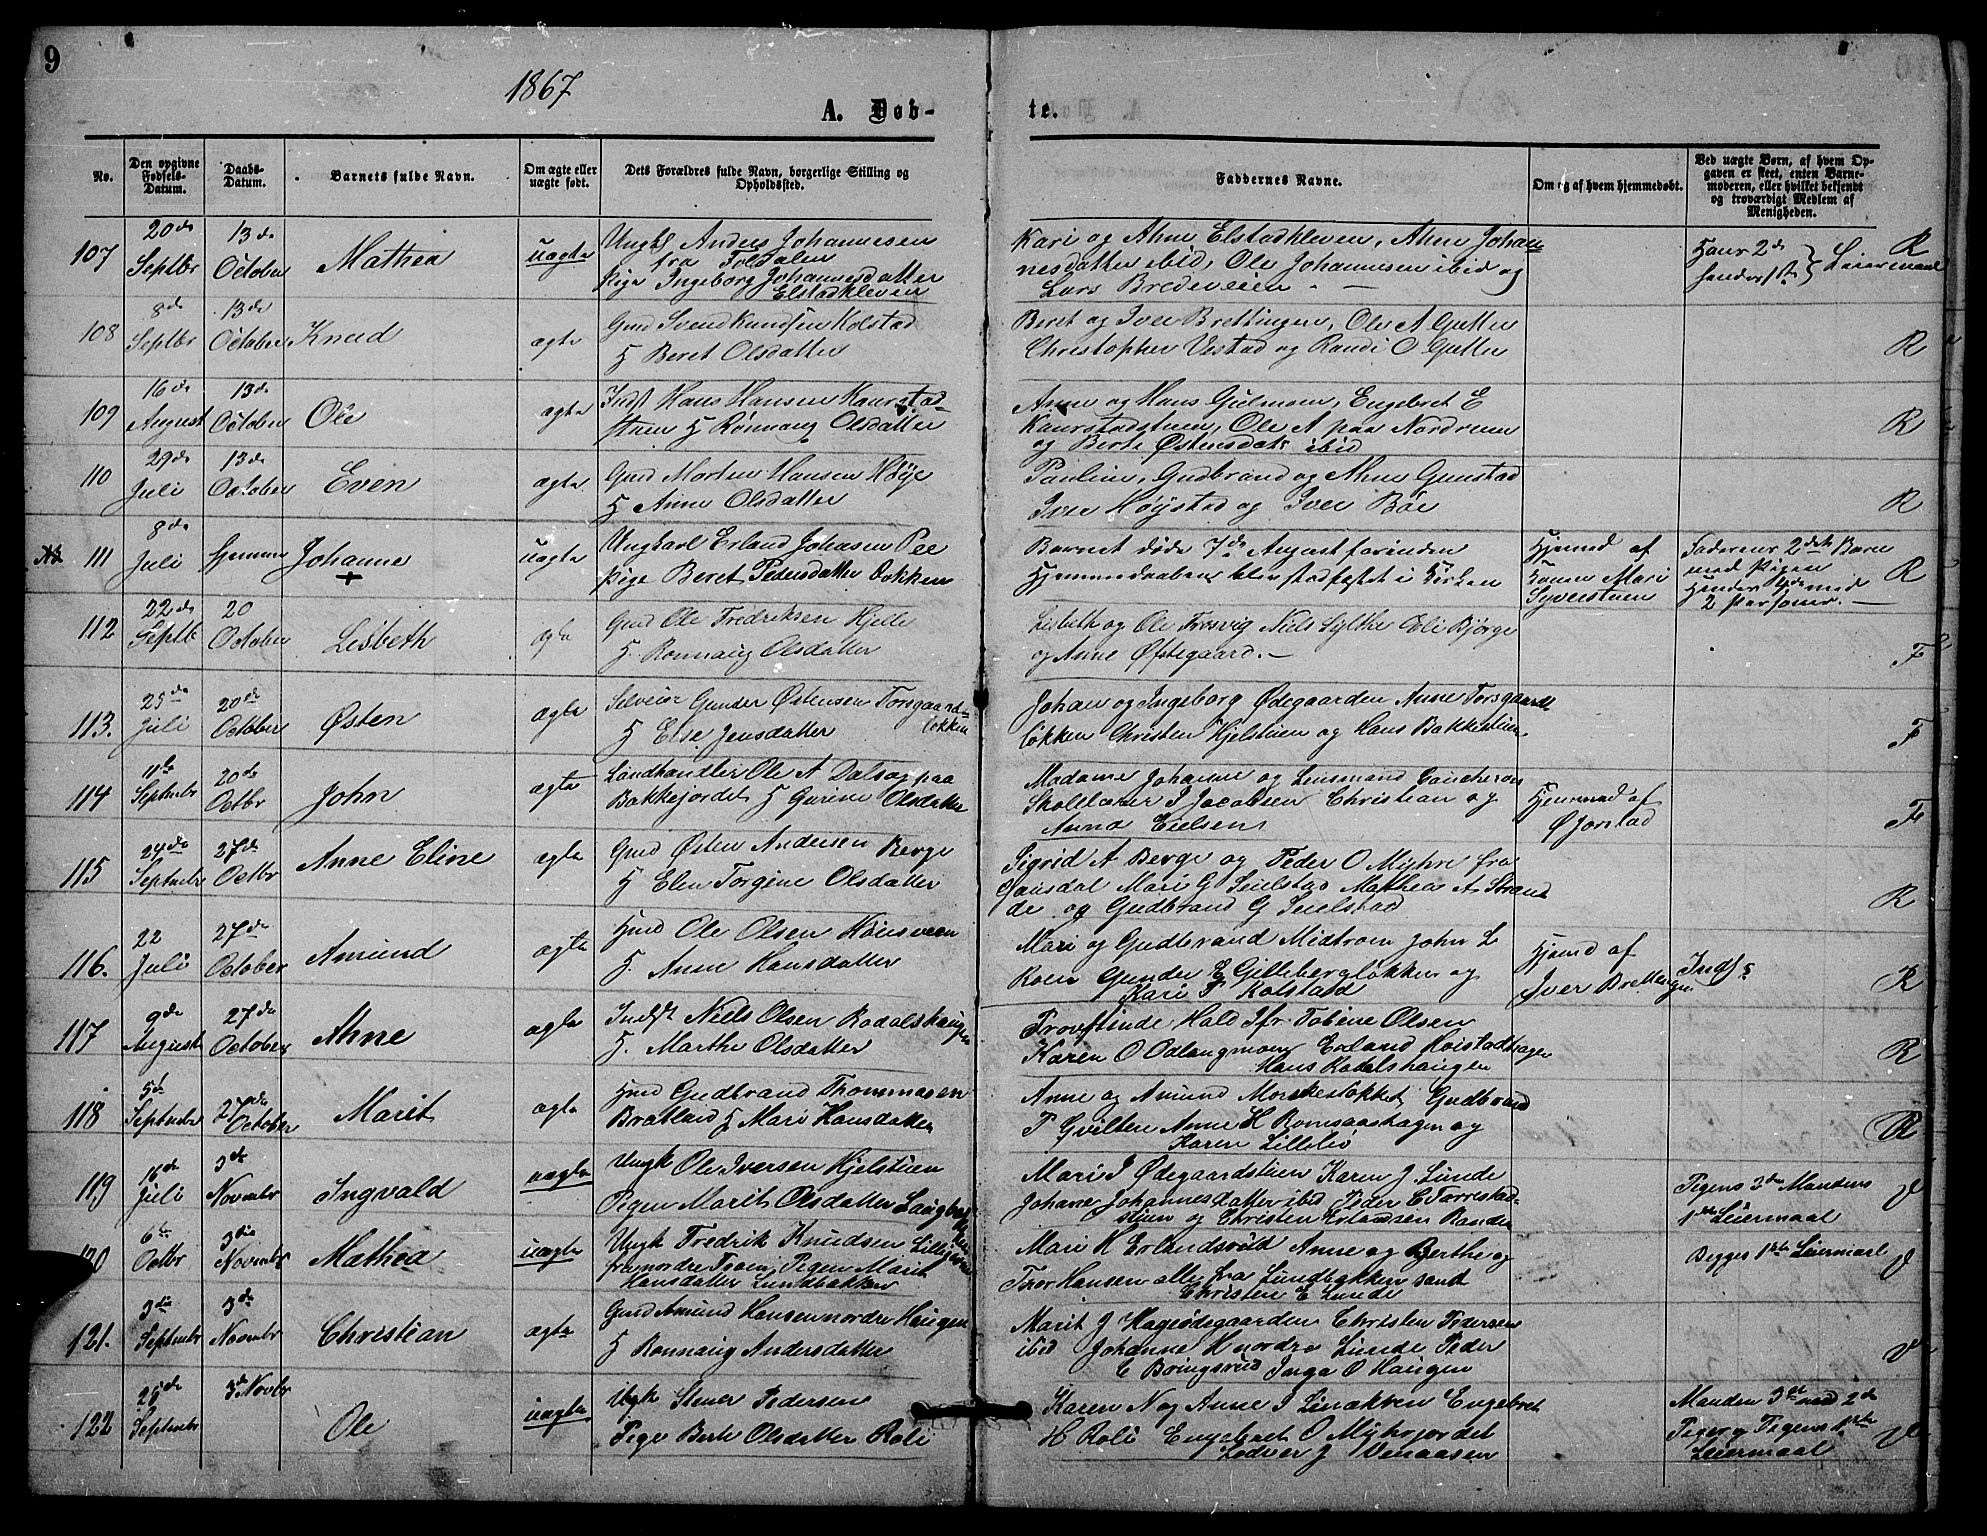 9
1867
A. Døb-
te.
No.
Den opgivne Fødsels-Datum.
Daabs-Datum.
Barnets fulde Navn.
Om ægte eller uægte født.
Dets Forældres fulde Navn, borgerlige Stilling og Opholdssted.
Faddernes Navne.
Om og af hvem hjemmedøbt.
Ved uægte Børn, af hvem Opgaven er skeet, enten Barnemoderen, eller hvilket bekjendt og troværdigt Medlem af Menigheden.
107 20de Septbr 13de October Mathea uægte
Ungk. Anders Johannesen
fra Foldalen
Pige Ingeborg Johannesdatter
Elstadkleven
Kari og Ahne Elstadkleven, Ahne Johan
nesdatter ibid, Ole Johannesen ibid og
Lars Bredeveien
Hans 2de
hendes 1ste Leiermaal
R
108 8de Septbr 13de October Knud ægte
Gmd Svend Knudsen Kolstad
H Beret Olsdatter
Beret og Iver Brettingen, Ole A
Christopher Vestad og Randi O
R
109 16de August 13de October Ole ægte
Indst Hans Hansen Kaurstad-
stuen H Rønnaug Olsdatter
Anne og Hans Gielmoen, Engebret E
Kaurstadstuen, Ole A paa Nordrum
og Berte Østensdatr ibid
R
110 29de Juli 13de October Even ægte
Gmd Morten Hansen Høye
H Anne Olsdatter
Pauline, Gudbrand og Ahne Gunstad
Iver Høystad og Iver Bøe
R
111 8de Juli hjemme Johanne uægte
Ungkarl Erland Johnsen Pee
Pige Beret Pedersdatter Løkken
Barnet døde 7de August forinden
Hjemmedaaben blev stadfæstet i Kirken
Hjemd af
Konen Mari
Syverstuen
Faderens 2det Barn
med Pigen
Hendes 4de med
2 Personer.
R
112 22de Septb 20 October Lisbeth ægte
Gmd Ole Fredriksen Hjelle
H. Ronnaug Olsdatter
Lisbeth og Ole Frosvig Niels Sylthe Eli Bjørge
og Anne Øftegaard.
F
113. 25de Juli 20de October Østen ægte
Selveier Gunder Østensen Forsgaard-
løkken
H Else Jensdatter
Johan og Ingeborg Ødegaarden Anne Forsgaard
løkken Christen Hjelstuen og Hans Bakkestuen
F
114 11te Septmbr 20de Octbr John ægte
Landhandler Ole A Dalseg paa
Bakkejordet H Gurine Olsdatter
Madame Johanne og Lensmand
Skolelærer J Jacobsen Christian og
Anna Eielsen
Hjemmed af
Ø Jorstad
F
115 24de Septmbr 27de Octbr Anne Eline ægte
Gmd Østen Andersen Berge
H Elen Torgine Olsdatter
Sigrid A Berge og Peder O Myhre fra
Gausdal Mari G Seielstad Mathea A Strand
de og Gudbrand G Seielstad
R
116. 22 Juli 27de October Amund ægte
Hmd Ole Olsen Kongsveen
H. Anne Hansdatter
Mari og Gudbrand Midtroen John L
Roen Gunder E Gilleberglokken og
Kari P Kolstad
Hjemd af
Iver Brettingen
R
117 9de August 27de October Ahne ægte
Indst Niels Olsen Rodalshaugen
H. Marthe Olsdatter
Provstinde Hald Jfr. Tobine Olsen
Karen O Odlaugmoen Erland
Hans Rodalshaugen
R
118 5te Septmbr 27de October Marit ægte
Hmd Gudbrand Thommasen
Bratland H Mari Hansdatter
Anne og Amund Morkestokket Gudbrand
P Gvilten Anne H Romsaashagen og
Karen Lillelio
R
119 16de Juli 3de Novmbr Ingvald uægte
Ungk Ole Iversen Hjelstuen
Pigen Marit Olsdatter
Mari J Ødegaardstuen Karen J. Lunde
Johane Johannesdatter ibid Peder E Forrestad-
stuen og Christen Erlandsen Banden
Pigens 3de Mandens
1ste Leiermaal
V
120 6te Octbr 3die Novembr Mathea uægte
Ungk Fredrik Knudsen
fra nordre Fron, Pigen Marit
Hansdatter Lundbakken
Mari H Erlandsrud Anne og Berthe og
Thor Hansen alle fra Lundbakken samt
Christen E Lunde
Begges 1ste Leiermaal
V
121. 3die Septmbr 3de Novmbr Christian ægte
Gmd Amund Hansen nordre Haugen
H Ronnaug Andersdatter
Marit J Hageødegaarden Christen Pedersen
ibid Johanne H nordre Lunde Peder
E Boingsrud Inga O Haugen
V
122 28de Septmbr 3de Novbr Ole uægte
Ungk Stener Pedersen
Pige Berte Olsdatter Roli
Karen N og Anne J Linøkken Engebret
H Roli Engebret O Myhrjordet
Lodver J Venaasen
Manden 3de med 2de
Piger, Pigens 1ste
Leiermaal
V